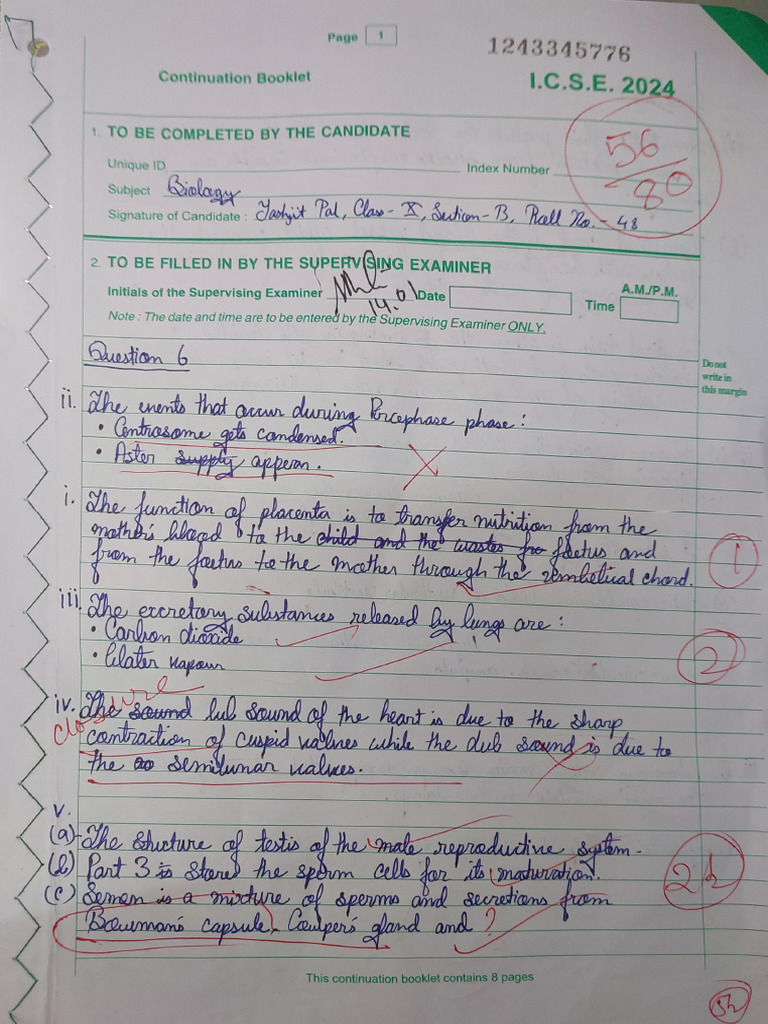 Page 1
1243345776
Continuation Booklet
I.C.S.E. 2024
1. TO BE COMPLETED BY THE CANDIDATE
56/80
Unique ID Index Number
Subject Biology
Signature of Candidate : Tashjit Pal, Class - X, Section - B, Roll No. - 48
2. TO BE FILLED IN BY THE SUPERVISING EXAMINER
Initials of the Supervising Examiner 14.01 Date
Time A.M./P.M.
Note : The date and time are to be entered by the Supervising Examiner ONLY.
Do not
write in
this margin
Question 6
ii. The events that occur during phase :
• Centrosome gets condensed.
• Aster supply appear.
i. The function of placenta is to transfer nutrition from the
mother's blood to the child and the wastes fro foetus and
from the foetus to the mother through the chord.
1
iii. The excretory substances released by lungs are :
• Carbon dioxide
• Water vapour
2
closure
iv. The sound lub sound of the heart is due to the sharp
contraction of cuspid valves while the dub sound is due to
the semilunar valves.
v.
(a) The structure of testis of the male reproductive system.
(b) Part 3 is stores the sperm cells for its maturation.
(c) Semen is a mixture of sperms and secretions from
Bowman's capsule, Cowper's gland and ?
This continuation booklet contains 8 pages